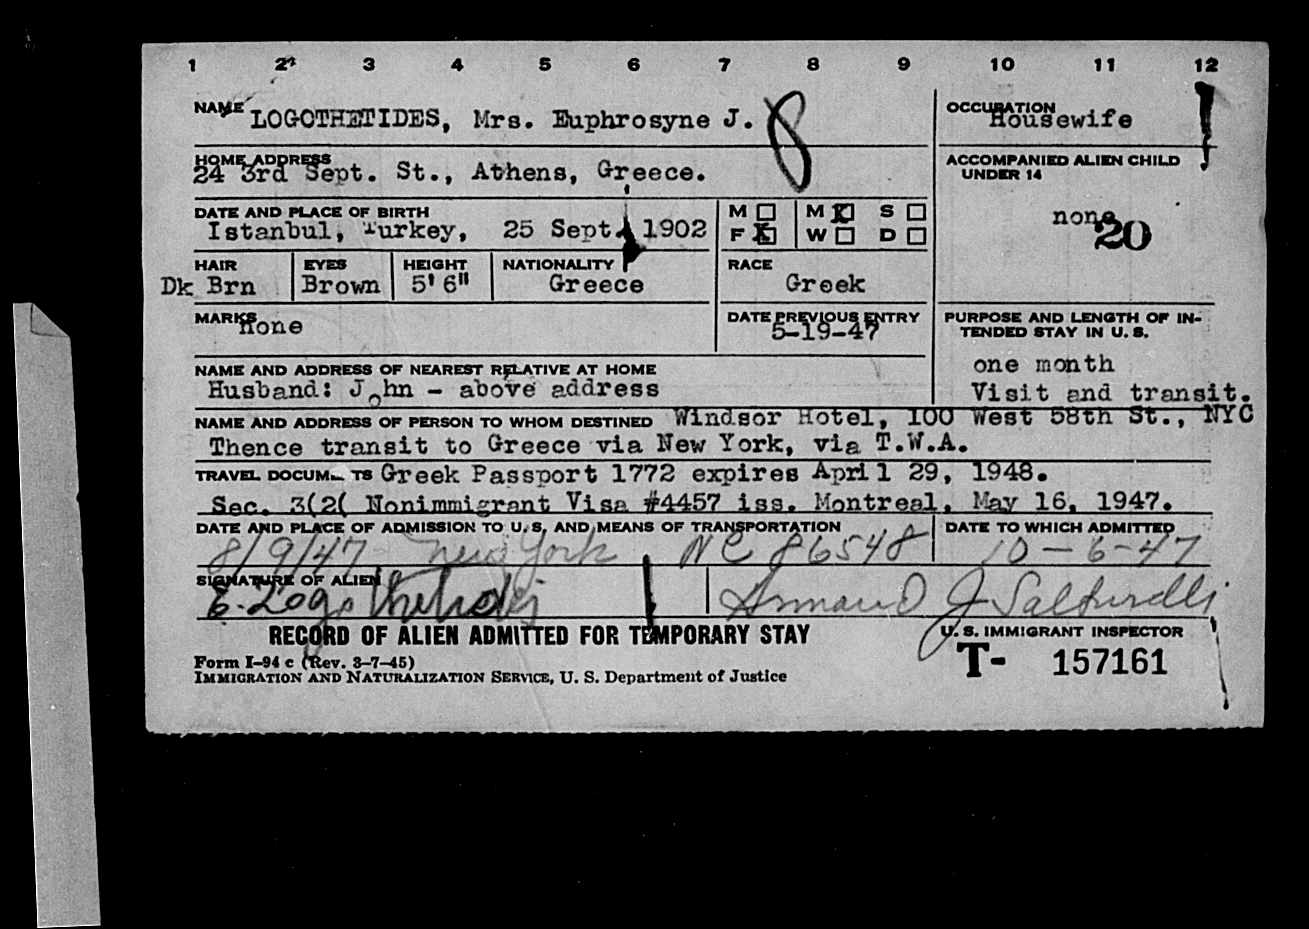 1 2 3 4 5 6 7 8 9 10 11 12
NAME LOGOTHETIDES, Mrs. Euphrosyne J. 8
OCCUPATION Housewife
HOME ADDRESS
24 3rd Sept. St., Athens, Greece.
ACCOMPANIED ALIEN CHILD
UNDER 14
none
20
DATE AND PLACE OF BIRTH
Istanbul, Turkey, 25 Sept. 1902
M M X S
F X W D
HAIR EYES HEIGHT NATIONALITY RACE
Dk Brn Brown 5'6" Greece Greek
MARKS None
DATE PREVIOUS ENTRY
5-19-47
PURPOSE AND LENGTH OF IN-
TENDED STAY IN U. S.
one month
Visit and transit.
NAME AND ADDRESS OF NEAREST RELATIVE AT HOME
Husband: John - above address
NAME AND ADDRESS OF PERSON TO WHOM DESTINED Windsor Hotel, 100 West 58th St., NYC
Thence transit to Greece via New York, via T.W.A.
TRAVEL DOCUM TS Greek Passport 1772 expires April 29, 1948.
Sec. 3(2( Nonimmigrant Visa #4457 iss. Montreal, May 16, 1947.
DATE AND PLACE OF ADMISSION TO U. S. AND MEANS OF TRANSPORTATION
8/9/47 New York NC 86548
DATE TO WHICH ADMITTED
10-6-47
SIGNATURE OF ALIEN
E. Logothetidis
Armand J
U. S. IMMIGRANT INSPECTOR
RECORD OF ALIEN ADMITTED FOR TEMPORARY STAY
Form I-94 c (Rev. 3-7-45)
IMMIGRATION AND NATURALIZATION SERVICE, U. S. Department of Justice
T- 157161